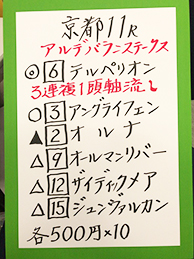 京都11R
アルデバランステークス
◎6 テルペリオン
3連複1頭軸流し
○3 アングライフェン
▲2 オルナ
△9 オールマンリバー
△12 ザイディックメア
△15 ジュンヴァルカン
各500円×10